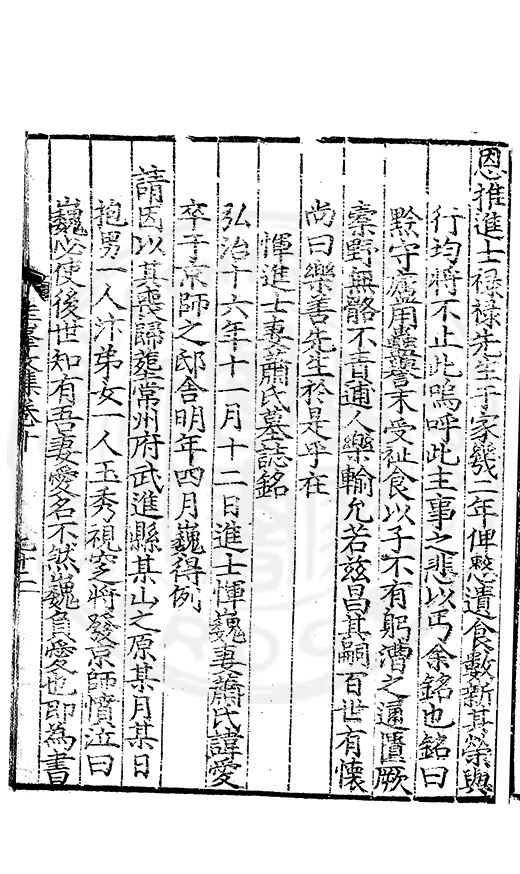 恩推進士祿祿先生于家幾二年俾慗遺食數新其榮與
行均將不止此嗚呼此主事之悲以丐余銘也銘曰
黔守蘆用蟲讋末受祉食以子不有躬漕之遹遺厥
橐野無骼不胔逋人樂輸允若茲昌其嗣百世有懷
尚曰樂善先生於是乎在
惲進士妻蕭氏墓誌銘
弘治十六年十一月十二日進士惲巍妻蕭氏諱愛
卒于京師之邸舍明年四月巍得例
請因以其喪歸塟常州府武進縣某山之原某月某日
抱男一人汴弟女一人玉秀視窆將發京師憤泣曰
巍必使後世知有吾妻愛名不然巍負愛也即為書
圭峯文集卷十